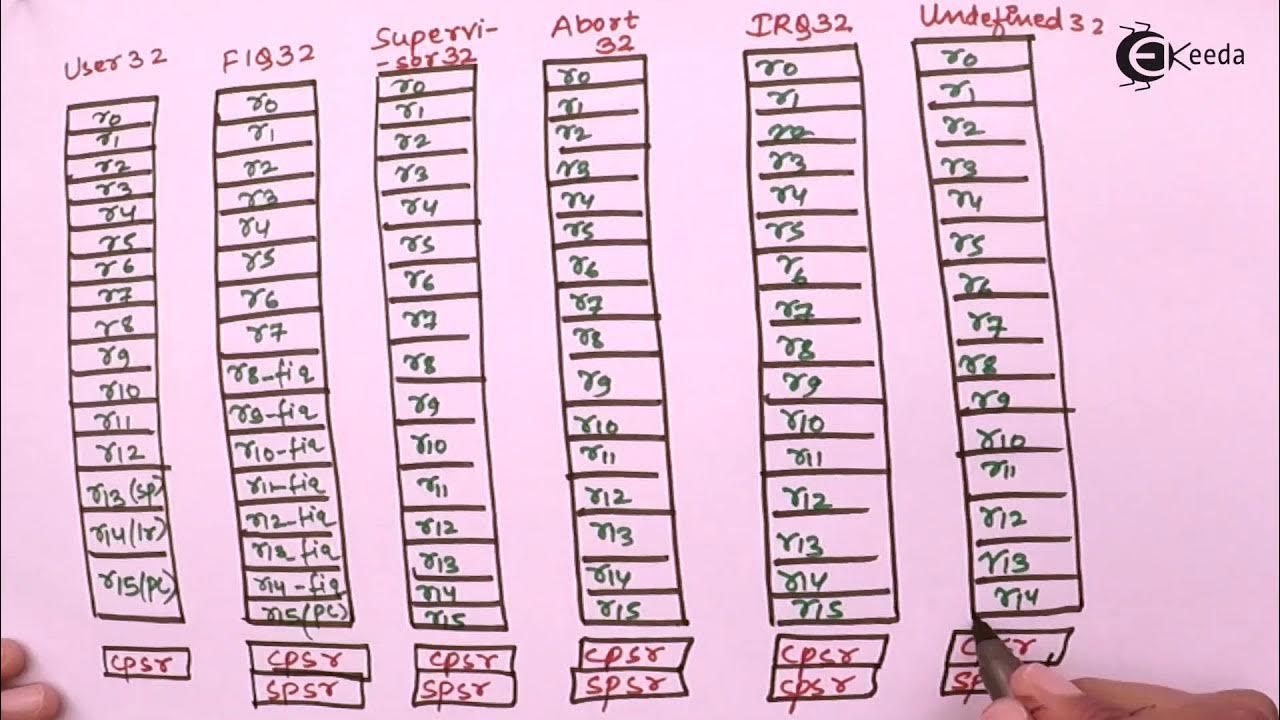 User32
r0
r1
r2
r3
r4
r5
r6
r7
r8
r9
r10
r11
r12
r13(sp)
r14(lr)
r15(PC)
cpsr
FIQ32
r0
r1
r2
r3
r4
r5
r6
r7
r8-fiq
r9-fiq
r10-fiq
r11-fiq
r12-fiq
r13-fiq
r14-fiq
r15(PC)
cpsr
spsr
Supervi-
-sor32
r0
r1
r2
r3
r4
r5
r6
r7
r8
r9
r10
r11
r12
r13
r14
r15
cpsr
spsr
Abort
32
r0
r1
r2
r3
r4
r5
r6
r7
r8
r9
r10
r11
r12
r13
r14
r15
cpsr
spsr
IRQ32
r0
r1
r2
r3
r4
r5
r6
r7
r8
r9
r10
r11
r12
r13
r14
r15
cpsr
spsr
Undefined32
r0
r1
r2
r3
r4
r5
r6
r7
r8
r9
r10
r11
r12
r13
r14
EKeeda